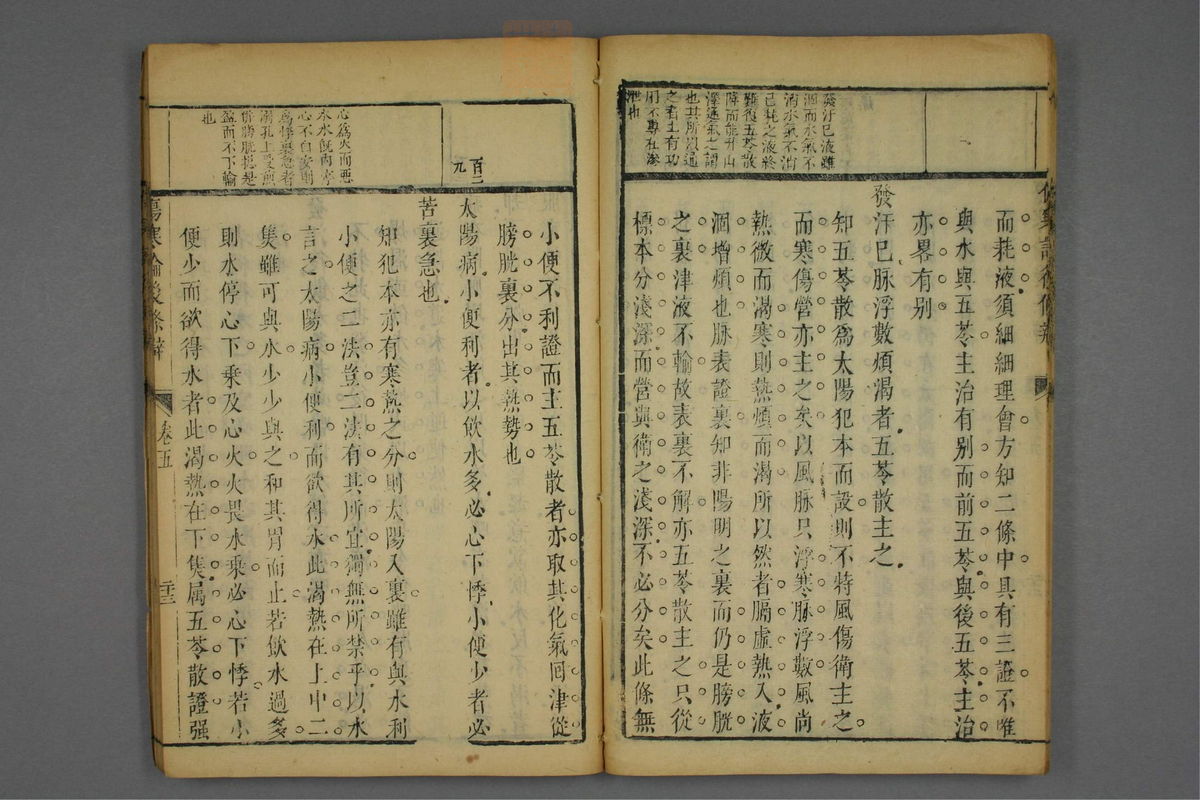 而耗液須細細理會方知二條中具有三證不唯
與水與五苓主治有别而前五苓與後五苓主治
亦畧有别
發汗已脉浮數煩渴者五苓散主之
知五苓散爲太陽犯本而設則不特風傷衛主之
而寒傷營亦主之矣以風脉只浮寒脉浮數風尚
熱微而渴寒則熱煩而渴所以然者膈虚熱入液
涸增煩也脉表證裏知非陽明之裏而仍是膀胱
之裏津液不輸故表裏不解亦五苓散主之只從
標本分淺深而營與衛之淺深不必分矣此條無
發汗已液雖
涸而水氣不
渴水氣不消
已耗之液終
難復五苓散
降而能升山
澤通氣之謂
也其所以通
之者土有功
用不專在滲
泄也
小便不利證而主五苓散者亦取其化氣回津從
膀胱裏分出其熱勢也
太陽病小便利者以飲水多必心下悸小便少者必
苦裏急也
知犯本亦有寒熱之分則太陽入裏雖有與水利
小便之二法豈二法有其所宜獨無所禁乎以水
言之太陽病小便利而欲得水此渴熱在上中二
焦雖可與水少少與之和其胃而止若飲水過多
則水停心下乗及心火火畏水乗必心下悸若小
便少而欲得水者此渴熱在下焦属五苓散證强
百二
九
心爲火而惡
水水既内停
心不自安則
爲悸裏急者
溺孔上受煎
併膀胱挹是
盈而不下輸
也
傷寒論後條辯
卷五
二十三